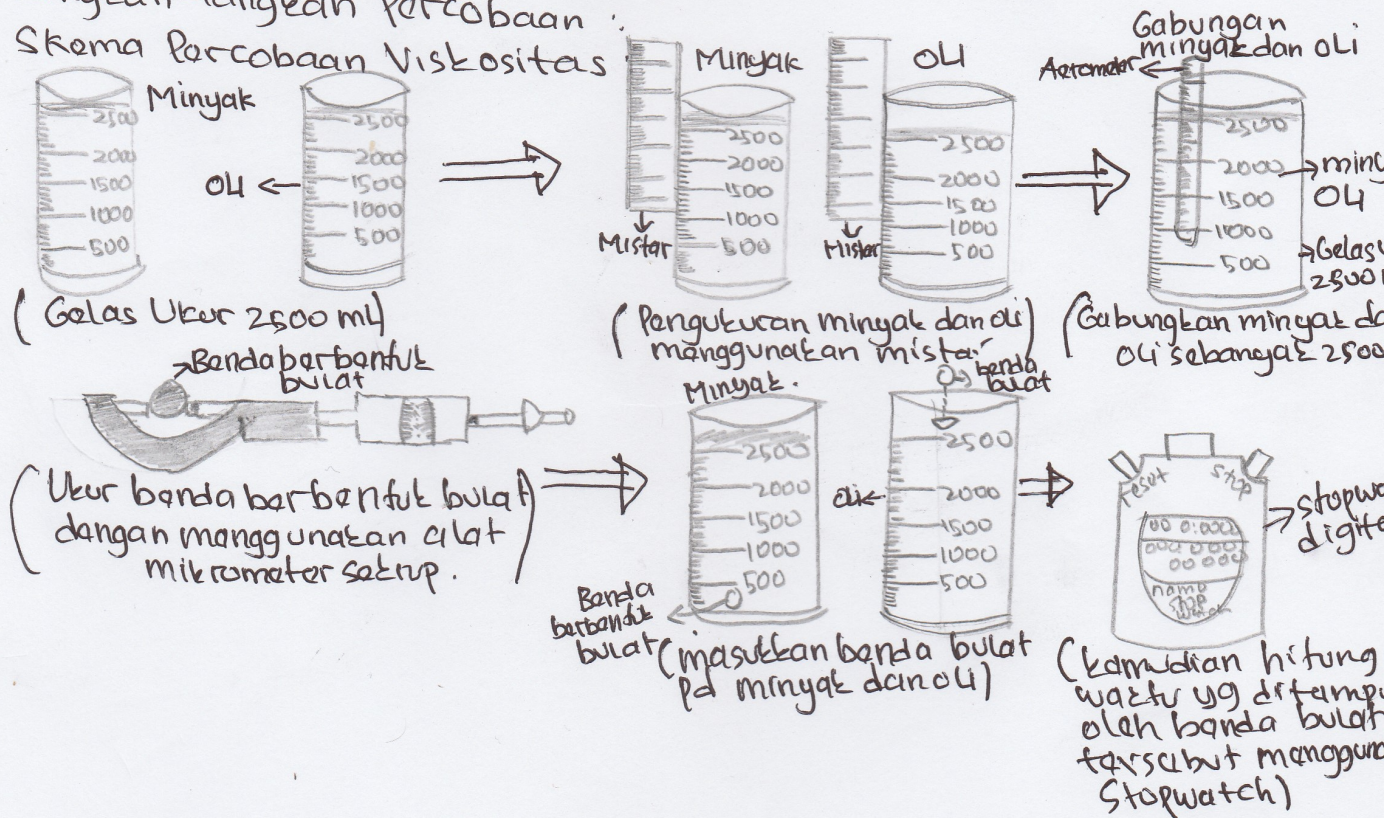 Percobaan :
Skema Percobaan Viskositas
Minyak
2500
2000
1500
1000
500
OLI
2500
2000
1500
1000
500
(Gelas Ukur 2500 ml)
Minyak
2500
2000
1500
1000
500
Mistar
OLI
2500
2000
1500
1000
500
Mistar
(Pengukuran minyak dan oli)
menggunakan mistar
Gabungan
minyak dan OLi
Aerometer
2500
2000
1500
1000
500
OLI
(Gabungkan minyak
OLi sebanyak 2500
Benda berbentuk
bulat
(Ukur benda berbentuk bulat
dengan menggunakan alat
mikrometer sekrup.)
Minyak.
2500
2000
1500
1000
500
Benda
berbentuk
bulat
benda
bulat
Oli
2500
2000
1500
1000
500
(masukkan benda bulat
pd minyak dan oli)
reset
stop
00 0:000
000 0:000
00 000
nama
stop
watch
(kemudian hitung
waktu yg
oleh benda bulat
tersebut
Stopwatch)